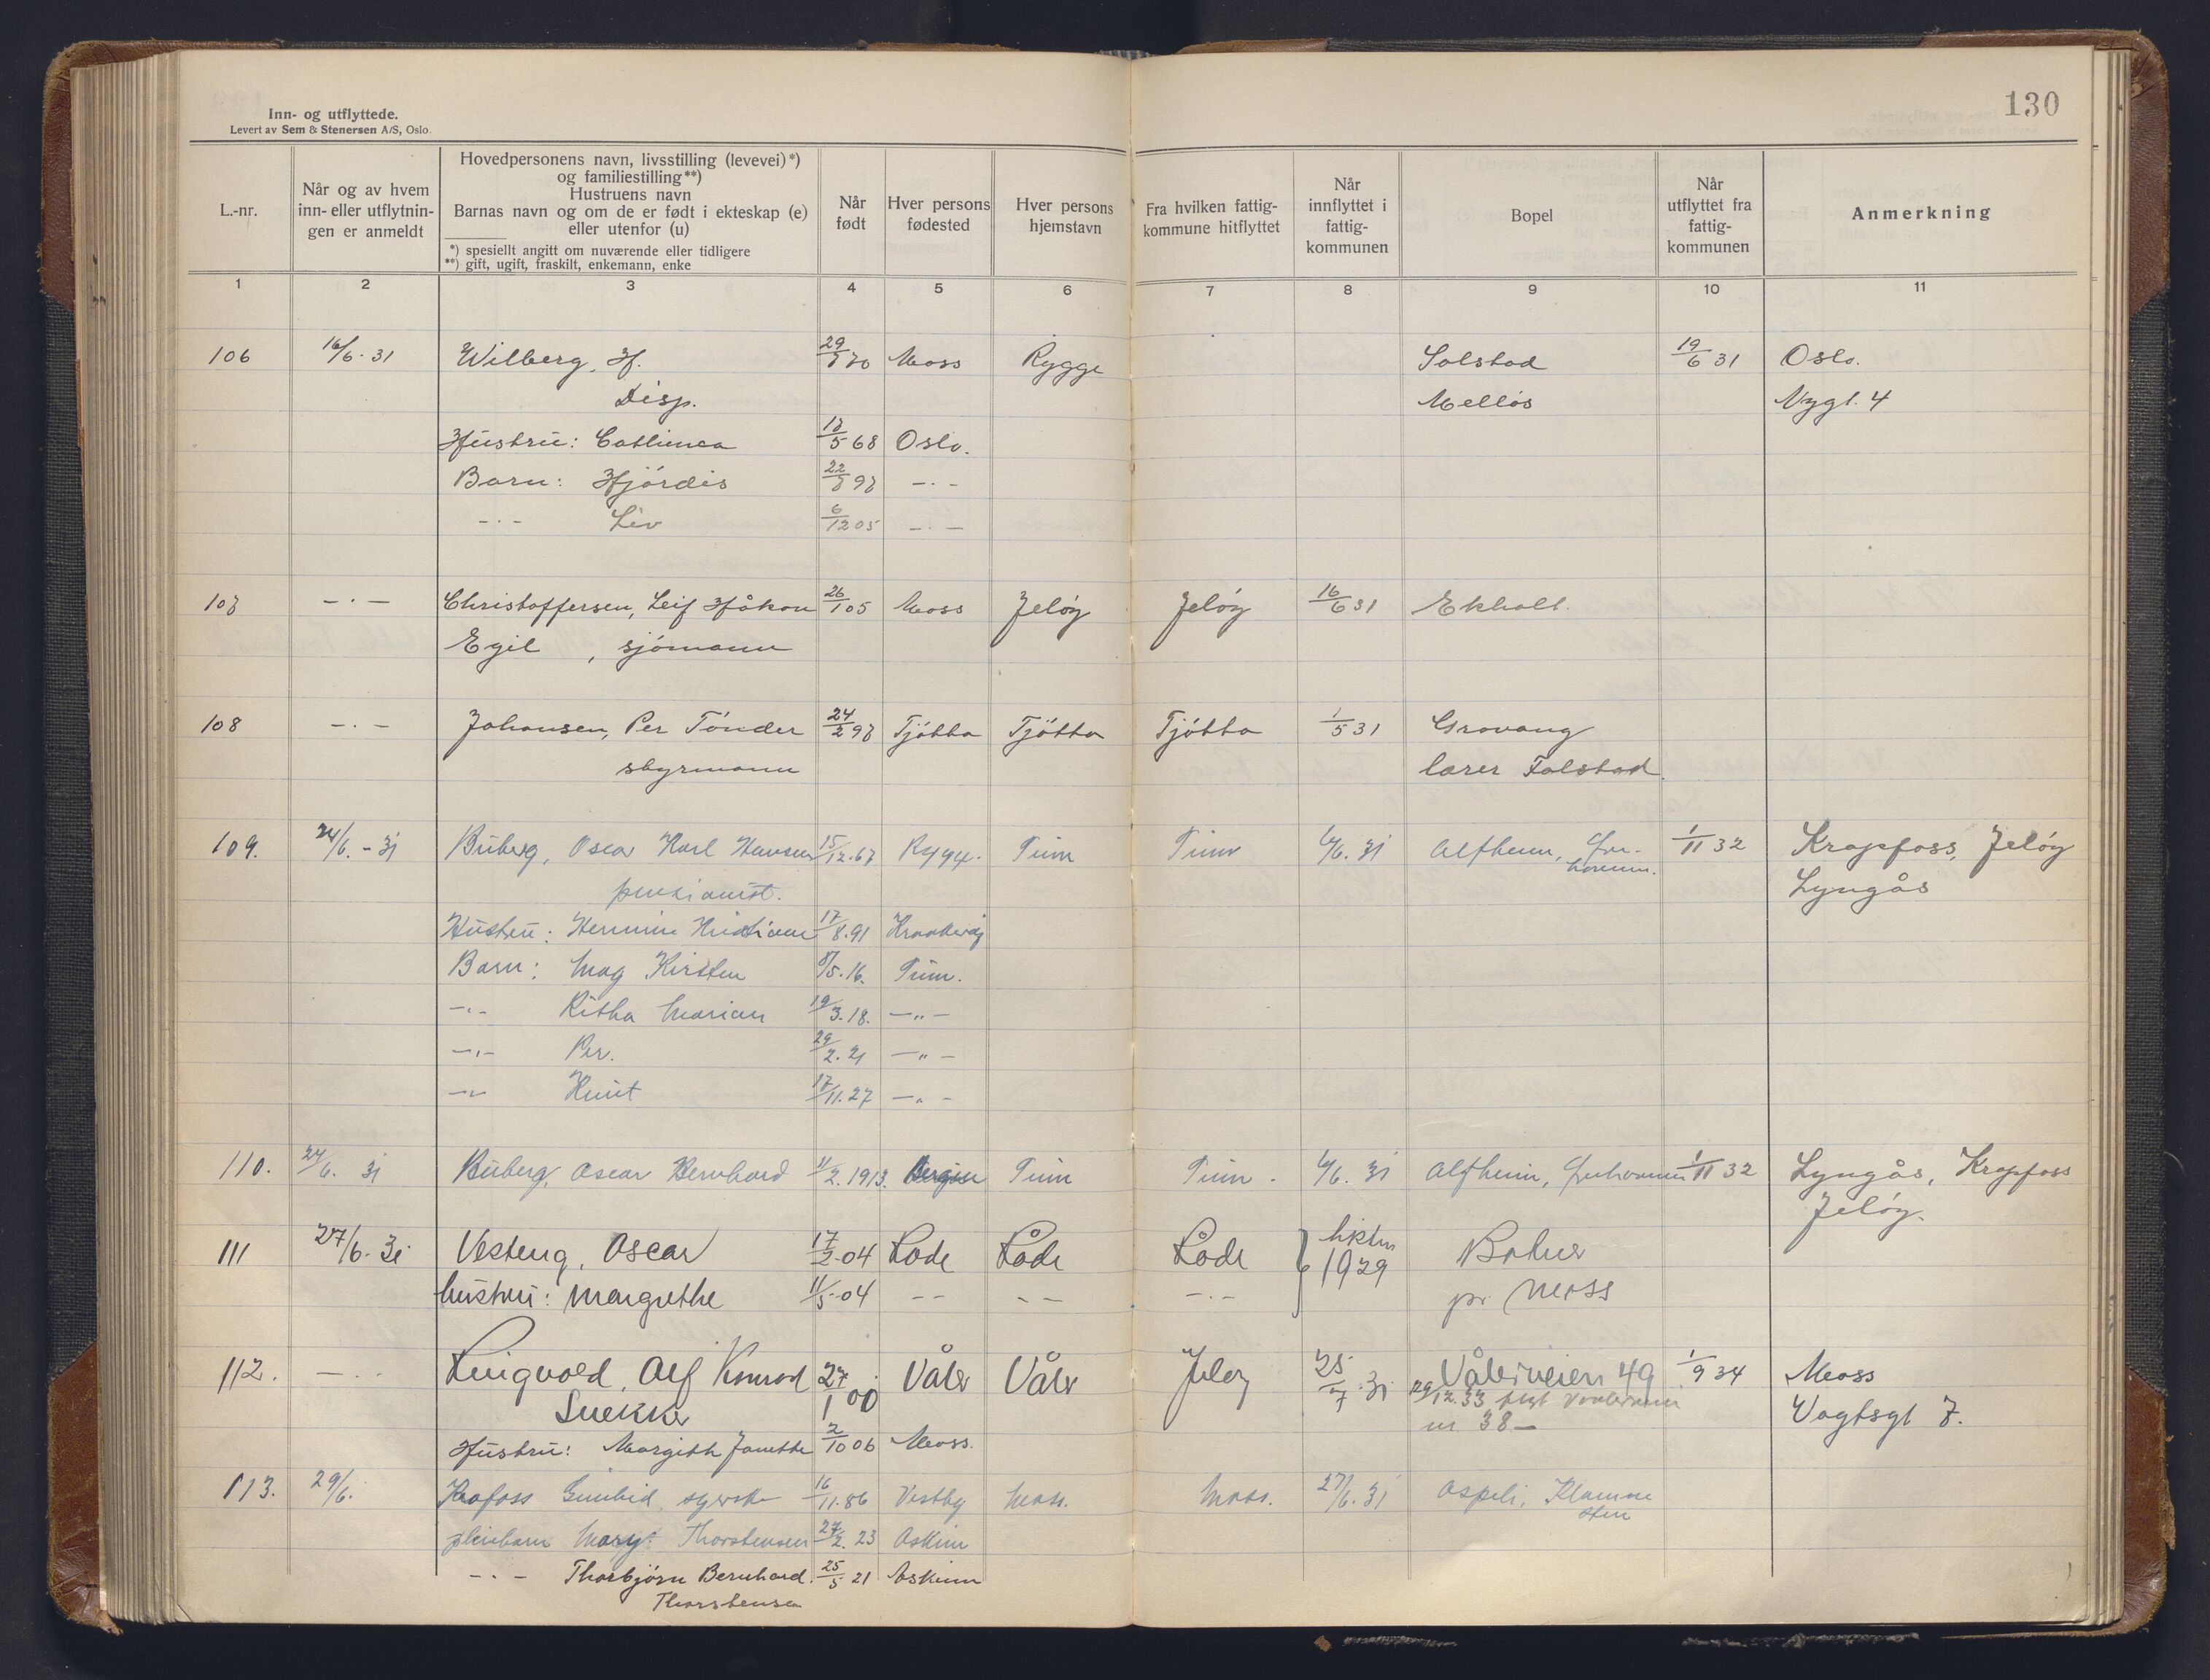 130
Inn- og utflyttede.
Levert av Sem & Stenersen A/S, Oslo.
L.-nr.
Når og av hvem inn- eller utflytnin- gen er anmeldt
Hovedpersonens navn, livsstilling (levevei)*)
og familiestilling**)
Hustruens navn
Barnas navn og om de er født i ekteskap (e)
eller utenfor (u)
*) spesiellt angitt om nuværende eller tidligere
**) gift, ugift, fraskilt, enkemann, enke
Når født
Hver persons fødested
Hver persons hjemstavn
Fra hvilken fattig- kommune hitflyttet
Når innflyttet i fattig- kommunen
Bopel
Når utflyttet fra fattig- kommunen
Anmerkning
1 2 3 4 5 6 7 8 9 10 11
106 16/6-31 Wilberg, Hf. 29/7 70 Moss Rygge Solstad 19/6 31 Oslo.
Disp. Melløs Nygt. 4
Hustru: Cathinca 17/5 68 Oslo.
Barn: Hjørdis 22/7 97 -.-
-.- Liv 6/12 05 -.-
107 -.- Christoffersen, Leif Håkon 26/1 05 Moss Jeløy Jeløy 16/6 31 Ekholt.
Egil, sjømann
108 -.- Johansen, Per Tønder 24/2 97 Tjøtta Tjøtta Tjøtta 1/5 31 Grovang
styrmann lærer Falstad
109. 24/6.-31 Buberg, Oscar Karl Hansen 15/12.67 Rygge. Tune Tune 6/6. 31 Alfheim, 1/11 32 Krapfoss, Jeløy
pensionist. Lyngås
Hustru: Hermine Kristiane 17/8.91
Barn: Mag Kirsten 8/5.16. Tune.
-.- Ritha Marian 19/3.18. -"-
-.- Per. 29/2.21 -"-
-.- Knut 17/11.27 -"-
110. 24/6. 31 Buberg, Oscar Bernhard 11/2.1913. Bergen Tune Tune. 6/6. 31 Alfheim, 1/11 32 Lyngås, Krapfoss
Jeløy.
111 27/6. 31 Vesteng, Oscar 17/2-04 Råde Råde Råde høsten 1929
hustru: Margrethe 11/5-04 -- -- -.- pr Moss
112. -.- Lingvold, Alf Konrad 27/1 00 Våler Våler Jeløy 25/7 31 Vålerveien 49 1/9 34 Moss
Snekker 29/12.33 flyt Vaalerveien Vogtsgt 7.
nr. 38 -
Hustru: Margith Janette 2/10 06 Moss.
113. 29/6. Hofoss Gunhild syerske 16/11.86 Vestby Moss. Moss. 27/6. 31 Aspeli,
pleiebarn Mary Thorstensen 27/2. 23 Askim
-.- Thorbjørn Bernhard. 25/5 21 Askim
Thorstensen